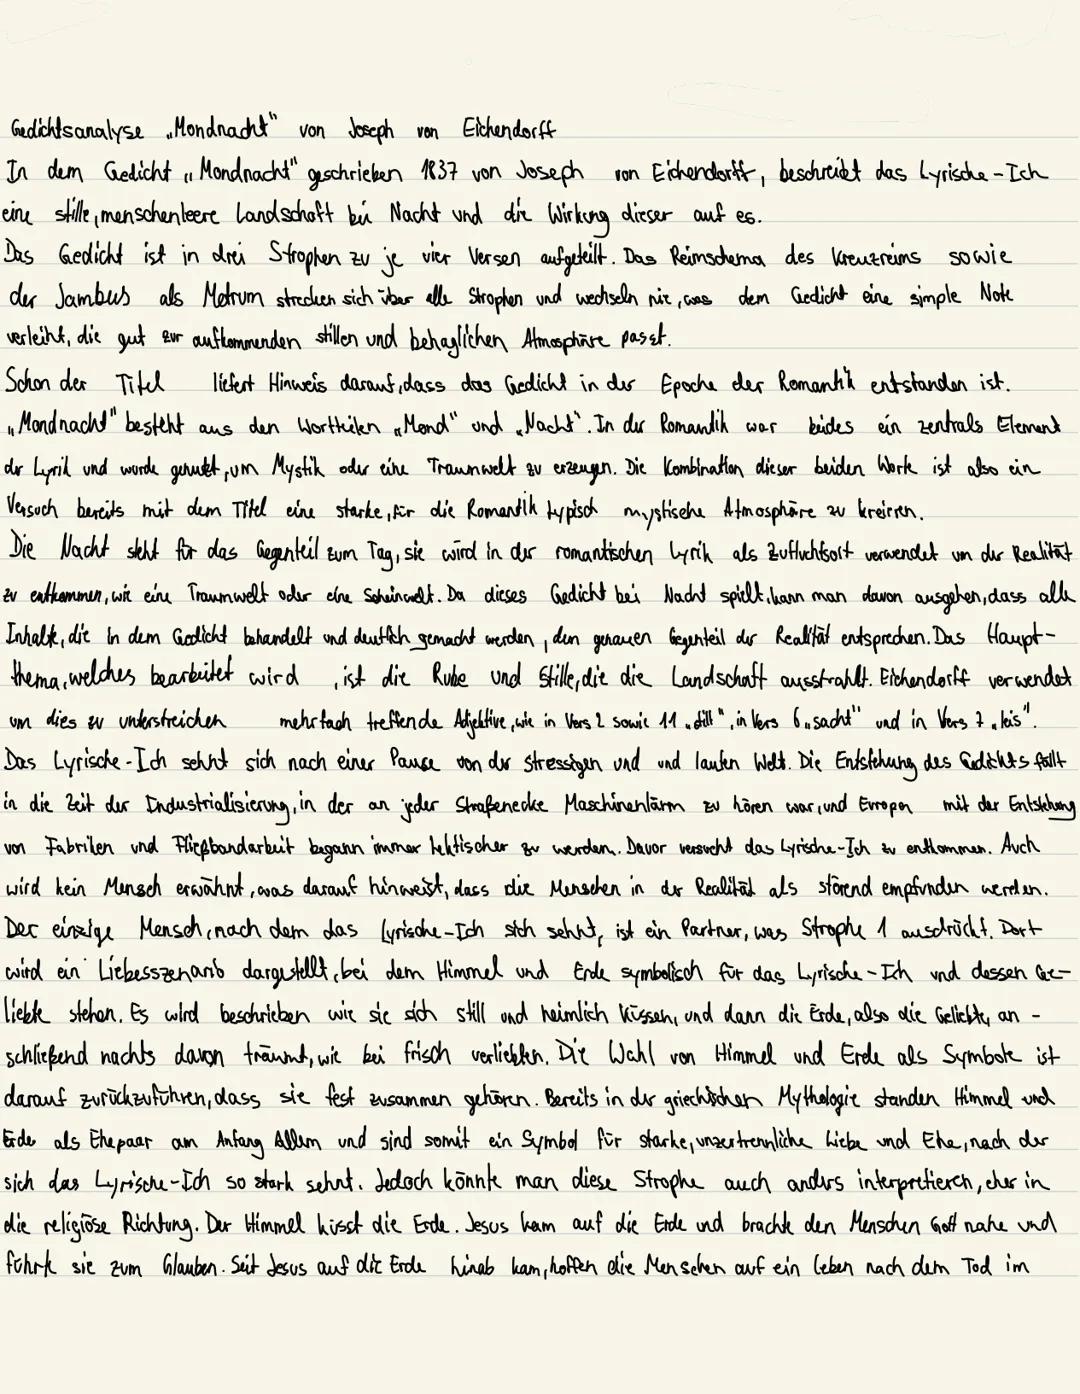 Gedichtsanalyse „Mondnacht" von Joseph von Eichendorff
In dem Gedicht „Mondnacht" geschrieben 1837 von Joseph von Eichendorff, beschreibt das Lyrische-Ich
eine stille, menschenleere Landschaft bei Nacht und die Wirkung dieser auf es.
Das Gedicht ist in drei Strophen zu je vier Versen aufgeteilt. Das Reimschema des Kreuzreims sowie
der Jambus als Metrum strecken sich über alle Strophen und wechseln nie, was dem Gedicht eine simple Note
verleiht, die gut zur aufkommenden stillen und behaglichen Atmosphäre passt.
Schon der Titel liefert Hinweis darauf, dass das Gedicht in der Epoche der Romantik entstanden ist.
„Mondnacht" besteht aus den Wortteilen „Mond" und „Nacht". In der Romantik war beides ein zentrals Element
der Lyrik und wurde genutzt, um Mystik oder eine Traumwelt zu erzeugen. Die Kombination dieser beiden Worte ist also ein
Versuch bereits mit dem Titel eine starke, für die Romantik typisch mystische Atmosphäre zu kreieren.
Die Nacht steht für das Gegenteil zum Tag, sie wird in der romantischen Lyrik als Zufluchtsort verwendet um der Realität
zu entkommen, wie eine Traumwelt oder eine Scheinwelt. Da dieses Gedicht bei Nacht spielt, kann man davon ausgehen, dass alle
Inhalte, die in dem Gedicht behandelt und deutlich gemacht werden, den genauen Gegenteil der Realität entsprechen. Das Haupt-
thema, welches bearbeitet wird, ist die Ruhe und Stille, die die Landschaft ausstrahlt. Eichendorff verwendet
um dies zu unterstreichen mehrfach treffende Adjektive, wie in Vers 2 sowie 11 „still", in Vers 6 „sacht" und in Vers 7 „leis".
Das Lyrische-Ich sehnt sich nach einer Pause von der stressigen und und lauten Welt. Die Entstehung des Gedichts fällt
in die Zeit der Industrialisierung, in der an jeder Straßenecke Maschinenlärm zu hören war, und Europa mit der Entstehung
von Fabriken und Fließbandarbeit begann immer hektischer zu werden. Davor versucht das Lyrische-Ich zu entkommen. Auch
wird kein Mensch erwähnt, was darauf hinweist, dass die Menschen in der Realität als störend empfunden werden.
Der einzige Mensch, nach dem das Lyrische-Ich sich sehnt, ist ein Partner, was Strophe 1 ausdrückt. Dort
wird ein Liebesszenario dargestellt, bei dem Himmel und Erde symbolisch für das Lyrische-Ich und dessen Ge-
liebte stehen. Es wird beschrieben wie sie sich still und heimlich küssen, und dann die Erde, also die Geliebte, an-
schließend nachts davon träumt, wie bei frisch verliebten. Die Wahl von Himmel und Erde als Symbole ist
darauf zurückzuführen, dass sie fest zusammen gehören. Bereits in der griechischen Mythologie standen Himmel und
Erde als Ehepaar am Anfang Allem und sind somit ein Symbol für starke, unzertrennliche Liebe und Ehe, nach der
sich das Lyrische-Ich so stark sehnt. Jedoch könnte man diese Strophe auch anders interpretieren, eher in
die religiöse Richtung. Der Himmel küsst die Erde. Jesus kam auf die Erde und brachte den Menschen Gott nahe und
führte sie zum Glauben. Seit Jesus auf die Erde hinab kam, hoffen die Menschen auf ein Leben nach dem Tod im